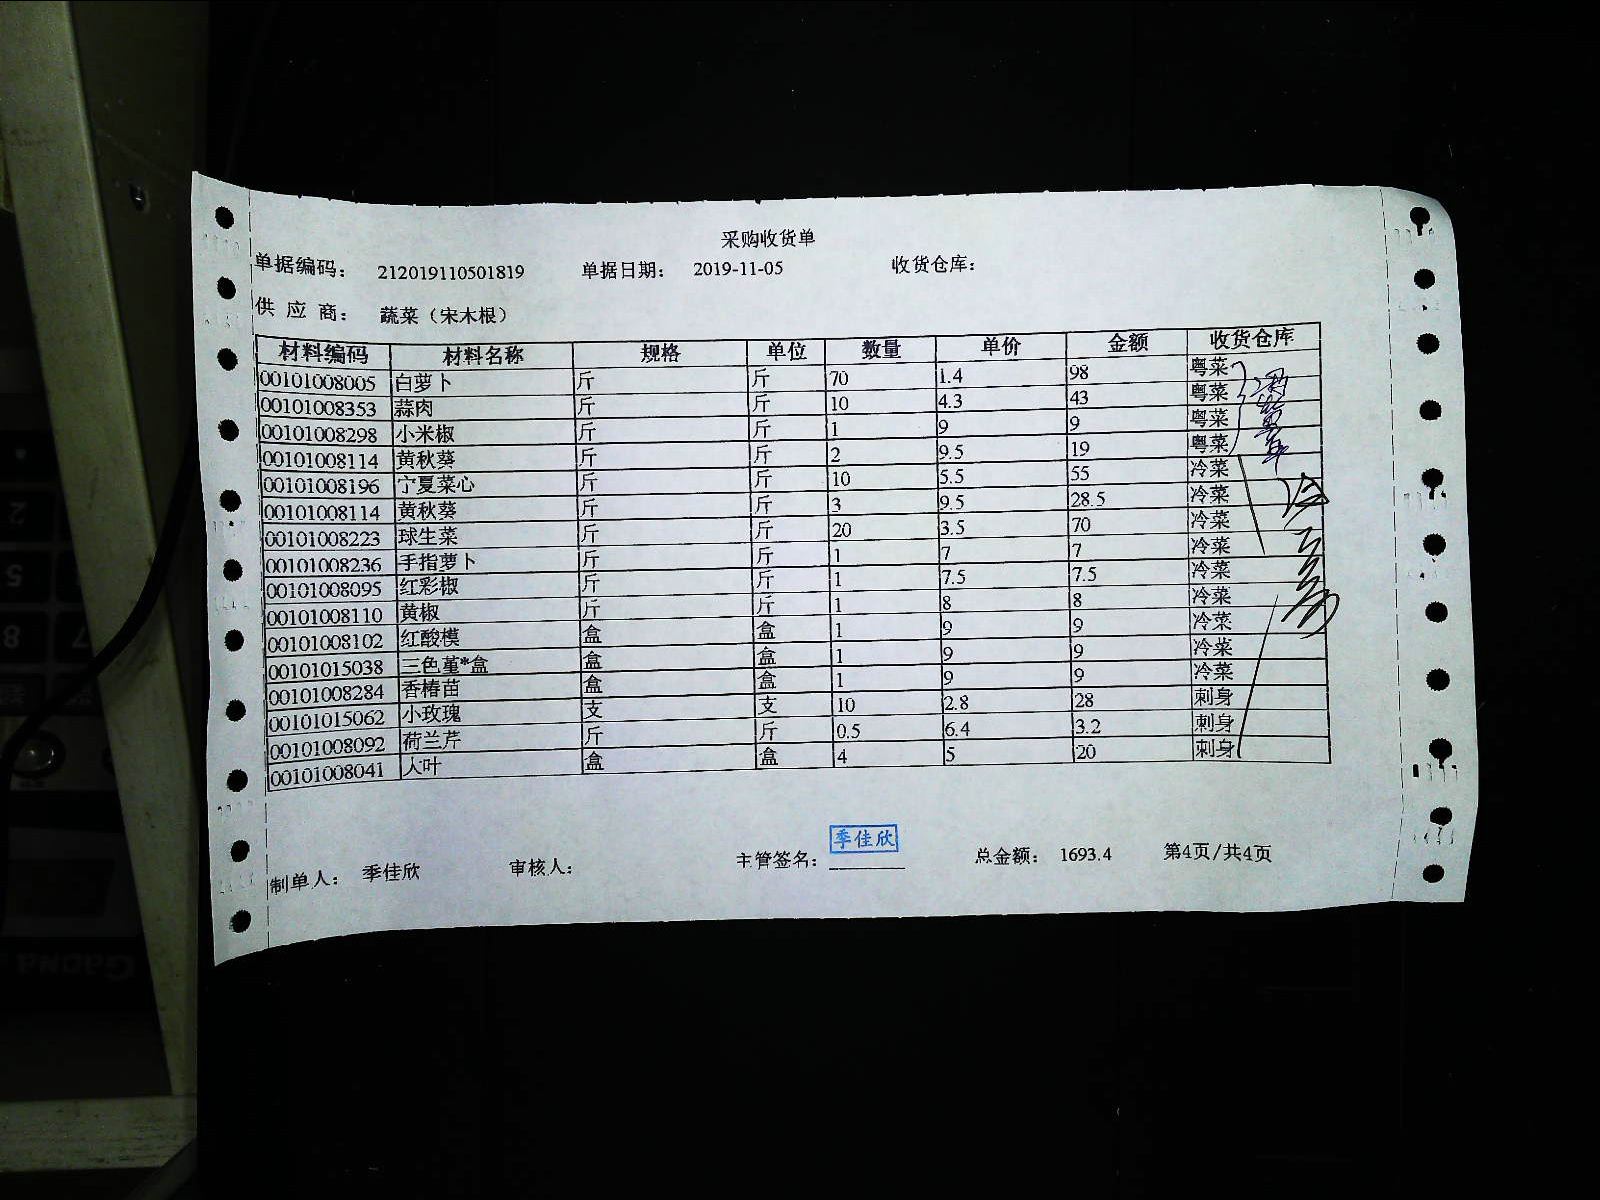 采购收货单
单据编码： 212019110501819 单据日期： 2019-11-05 收货仓库：
供 应 商： 蔬菜（宋木根）
材料编码 材料名称 规格 单位 数量 单价 金额 收货仓库
00101008005 白萝卜 斤 斤 70 1.4 98 粤菜
00101008353 蒜肉 斤 斤 10 4.3 43 粤菜
00101008298 小米椒 斤 斤 1 9 9 粤菜
00101008114 黄秋葵 斤 斤 2 9.5 19 粤菜
00101008196 宁夏菜心 斤 斤 10 5.5 55 冷菜
00101008114 黄秋葵 斤 斤 3 9.5 28.5 冷菜
00101008223 球生菜 斤 斤 20 3.5 70 冷菜
00101008236 手指萝卜 斤 斤 1 7 7 冷菜
00101008095 红彩椒 斤 斤 1 7.5 7.5 冷菜
00101008110 黄椒 斤 斤 1 8 8 冷菜
00101008102 红酸模 盒 盒 1 9 9 冷菜
00101015038 三色堇*盒 盒 盒 1 9 9 冷菜
00101008284 香椿苗 盒 盒 1 9 9 冷菜
00101015062 小玫瑰 支 支 10 2.8 28 刺身
00101008092 荷兰芹 斤 斤 0.5 6.4 3.2 刺身
00101008041 人叶 盒 盒 4 5 20 刺身
制单人： 季佳欣 审核人： 主管签名： 季佳欣 总金额： 1693.4 第4页/共4页